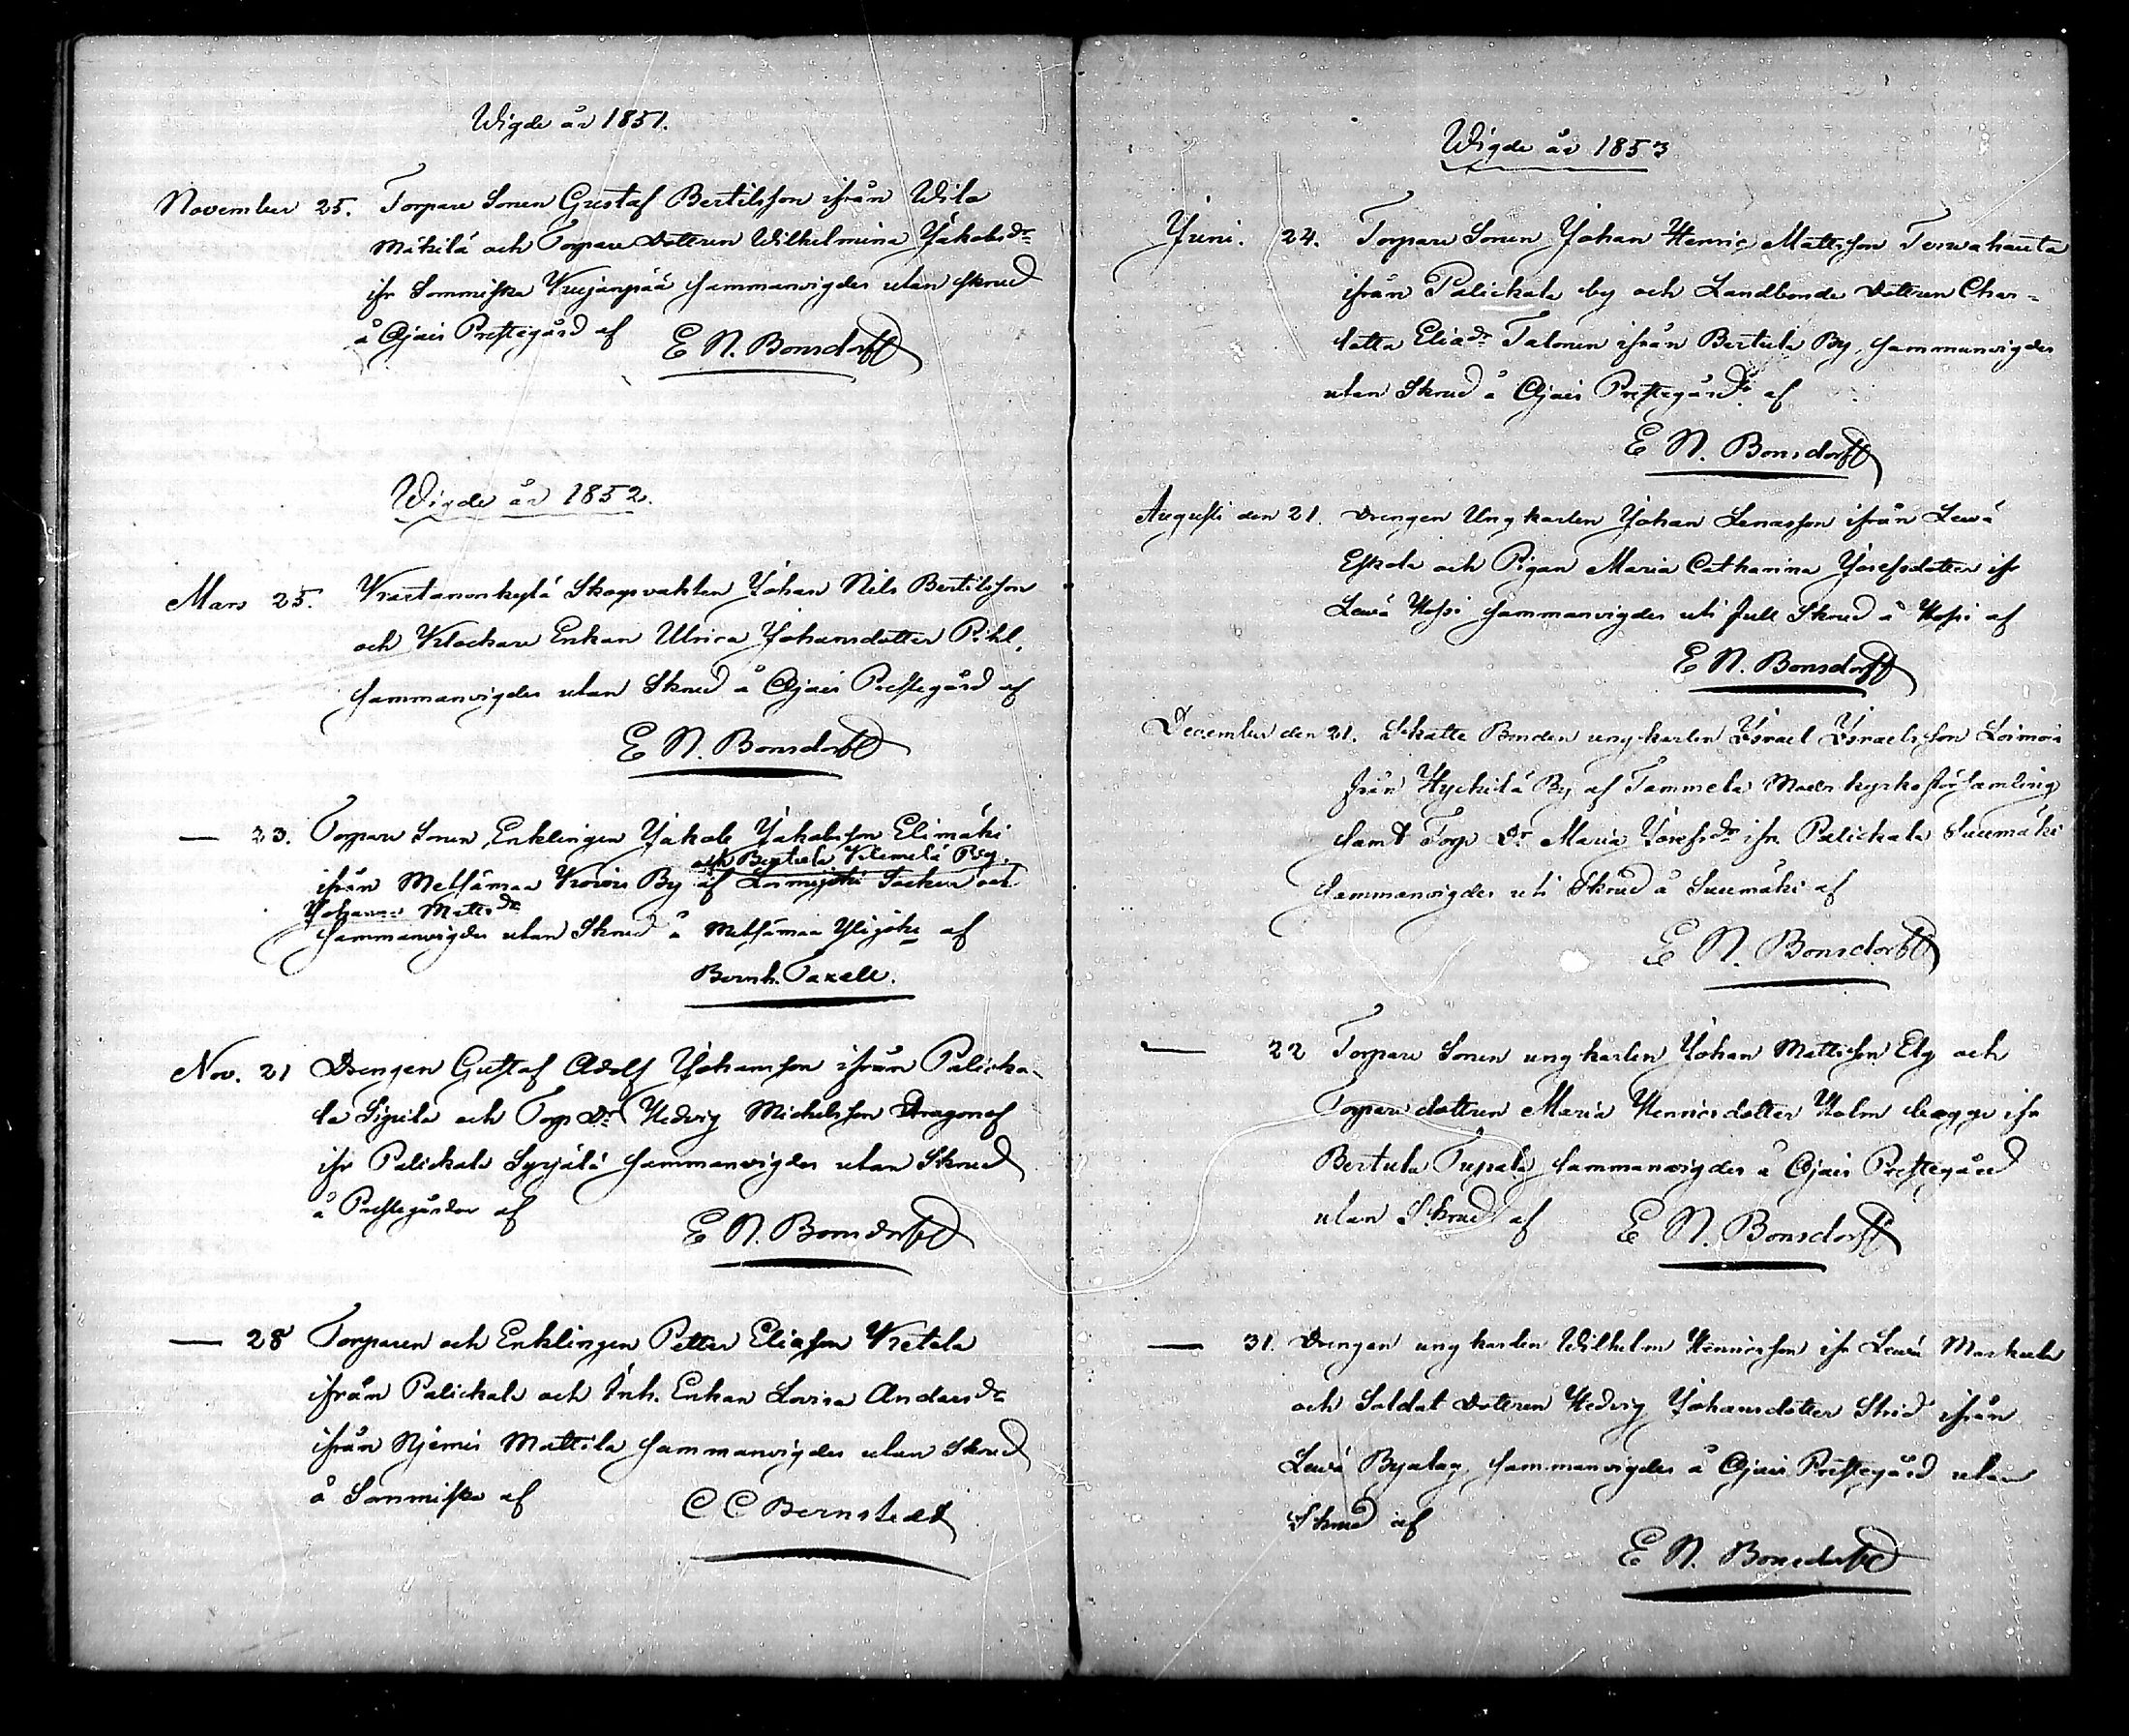 Wigde år 1851.
November 25. Torpare Sonen Gustaf Bertilsson ifrån Wila
Mäkilä och Torpare Dottren Wilhelmina Jakobsdr
ifr Sommiska Kujanpää sammanvigdes utan skrud
å Ojais Prestegård af E N. Bonsdorff
Wigde år 1852.
Mars 25. Kraatanonkylä Skogsvakten Johan Nils Bertilsson
och Klockare Enkan Ulrica Johansdotter Pihl,
sammanvigdes utan Skrud å Ojais Prestegård af
E N. Bonsdorff
— 23. Torpare Sonen, Enklingen Jakob Jakobsson Elimäki
ifr Bertula Klemelä Pig.
ifrån Metsämaa Krovis By af Loimijoki Socken och
Johanna Mattsdr
sammanvigdes utan Skrud å Metsämaa Ylijoki af
Bernh. Taxell.
Nov. 21 Drengen Gustaf Adolf Johansson ifrån Palicka-
la Sipila och Torp Dr Hedvig Michelsson Dragonof
ifr Palickala Syrjälä sammanvigdes utan Skrud
å Prestegården af E N. Bonsdorff
— 28 Torparen och Enklingen Petter Eliasson Ketala
ifrån Palickala och Inh. Enkan Lovisa Andersdr
ifrån Njemis Mattila sammanvigdes utan Skrud
å Sommiska af C C Bernstedt
Wigde år 1853
Juni. 24. Torpare Sonen Johan Henric Mattsson Terwahauta
ifrån Palickala by och Landbonde Dottren Char-
lotta Eliadr Talonen ifrån Bertula By, sammanvigdes
utan Skrud å Ojais Prestegård af
E N. Bonsdorff
Augusti den 21. Drengen Ungkarlen Johan Lenasson ifrån Lewä
Eskola och Pigan Maria Catharina Josefsdotter ifr
Lewä Hossi sammanvigdes uti full Skrud å Hossi af
E N. Bonsdorff
December den 21. Skatte Bonden ungkarlen Israel Israelsson Loimois
från Hyckilä By af Tammela Moderkyrkoförsamling
samt Torp Dr Maria Josefsdr ifr. Palickala Suumäki
Sammanvigdes uti Skrud å Suumäki af
E N. Bonsdorff
— 22 Torpare Sonen ungkarlen Johan Mattsson Elg och
Torpare dottren Maria Henricsdotter Holm bægge ifr
Bertula Tupala sammanvigdes å Ojais Prestegård
utan Skrud af E N. Bonsdorff
— 31. Drengen ungkarlen Wilhelm Henricsson ifr Lewä Markula
och Soldat Dottren Hedvig Johansdotter Strid ifrån
Lewä Byalag, sammanvigdes å Ojais Prestegård utan
Skrud af
E N. Bonsdorff